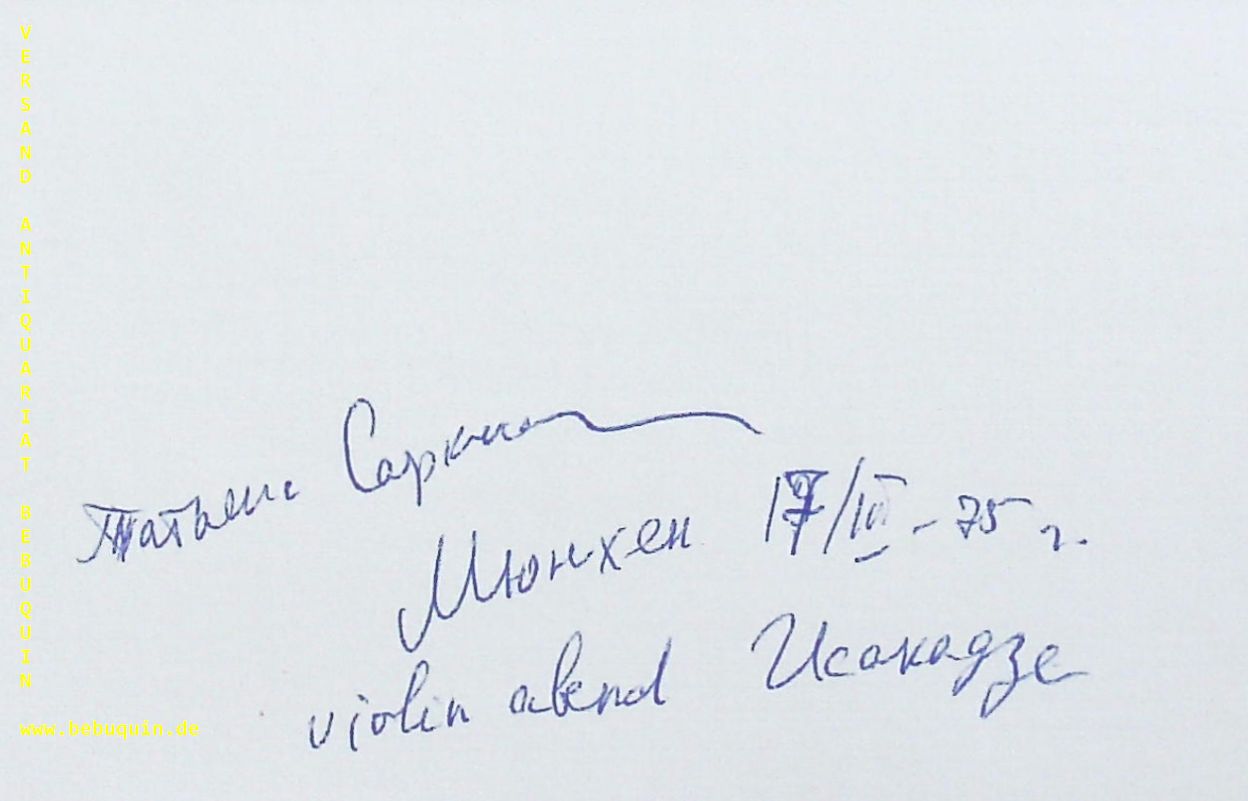 VERSAND ANTIQUARIAT BEBUQUIN
Татьяна
Мюнхен 17/III - 75 г.
violin abend Исакадзе
www.bebuquin.de